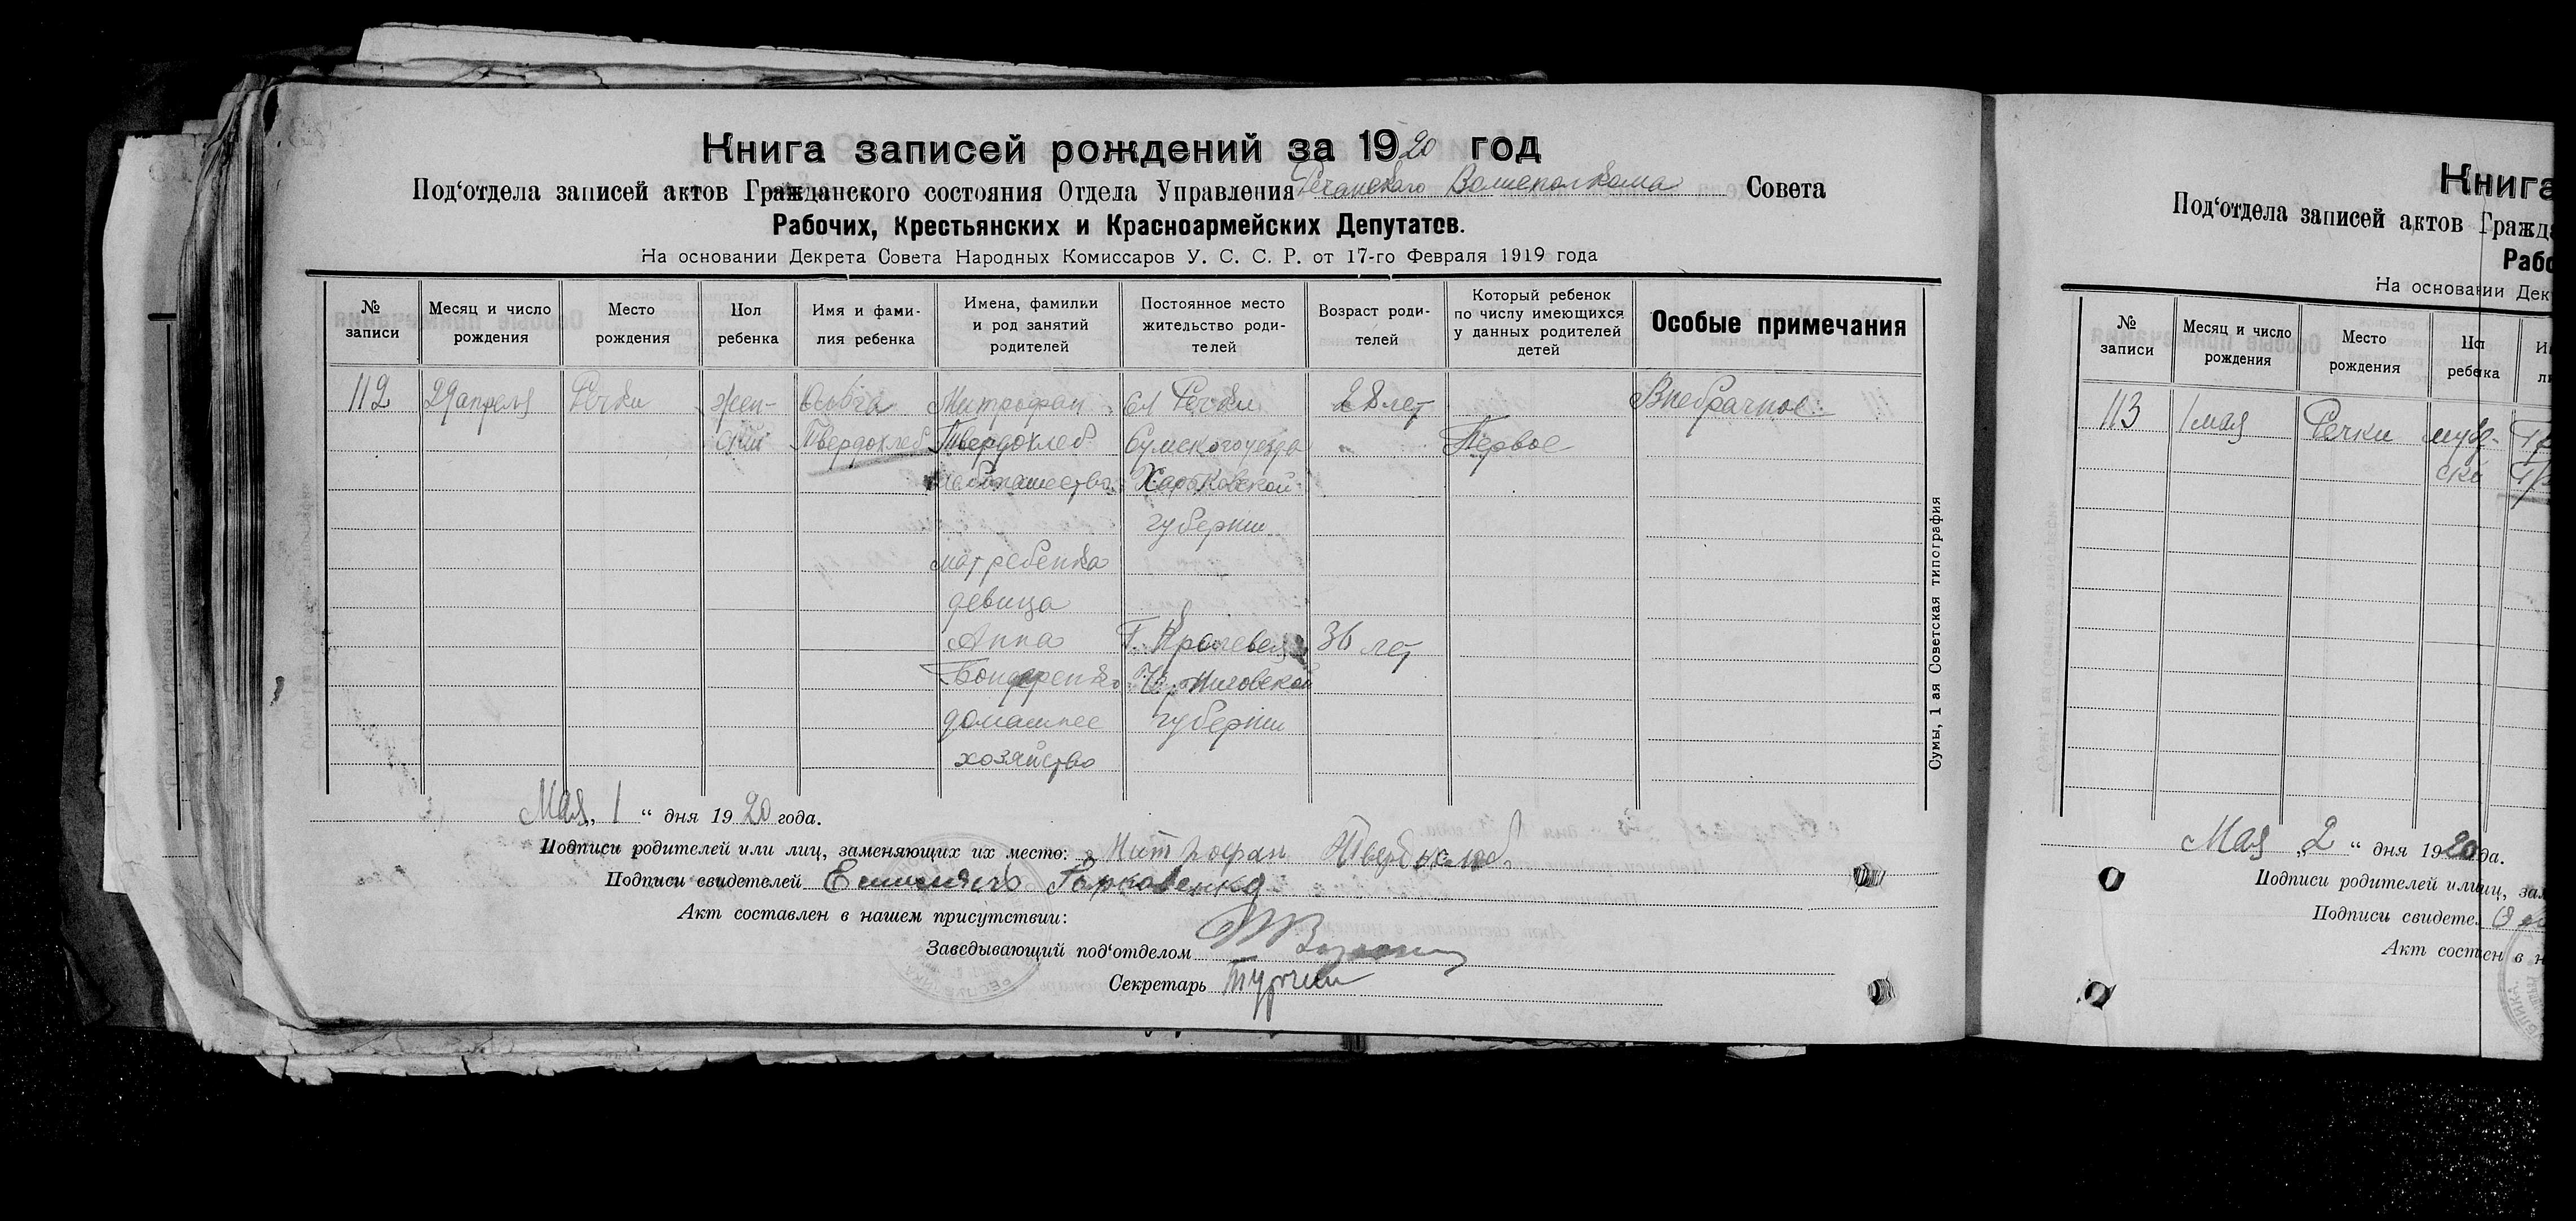 Книга записей рождений за 1920 год
Под‘отдела записей актов Гражданского состояния Отдела Управления Речанского Волисполкома Совета
Рабочих, Крестьянских и Красноармейских Депутатов.
На основании Декрета Совета Народных Комиссаров У. С. С. Р. от 17-го Февраля 1919 года
№ записи
Месяц и число рождения
Место рождения
Пол ребенка
Имя и фами-
лия ребенка
Имена, фамилии
и род занятий
родителей
Постоянное место
жительство роди-
телей
Возраст роди-
телей
Который ребенок
по числу имеющихся
у данных родителей
детей
Особые примечания
112 29 апреля Речки жен- Ольга Митрофан сл Речки 28 лет Внебрачное
ский Твердохлеб Твердохлеб Сумского уезда Первое
хлебопашество Харьковской
губернии
мат ребенка
девица
Анна Г. Кролевец 36 лет
Бондаренко Черниговской
домашнее губернии
хозяйство
Мая „ 1 “ дня 1920 года.
Подписи родителей или лиц, заменяющих их место: Митрофан Твердохлеб
Подписи свидетелей
Акт составлен в нашем присутствии:
Заведывающий под‘отделом
Секретарь
Сумы, 1 ая Советская типография
Книга
Под‘отдела записей актов Гражда
Рабо
На основании Дек
№ записи
Месяц и число рождения
Место рождения
Пол ребенка
113 1 мая Речки муж-
ски
Мая „ 2 “ дня 1920 да.
Подписи родителей или лиц, зам
Подписи свидете.
Акт состен в н